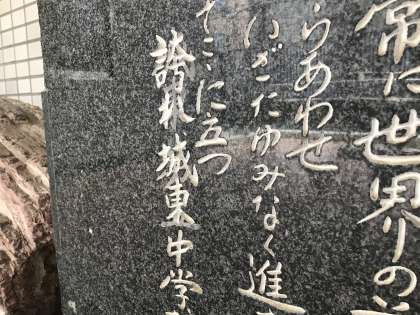 常に世界の
らあわせ
いざたゆみなく進
そこに立つ
誇れ城東中学